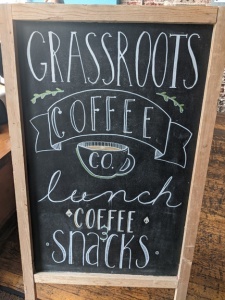 GRASSROOTS
COFFEE
CO.
lunch
COFFEE
snacks